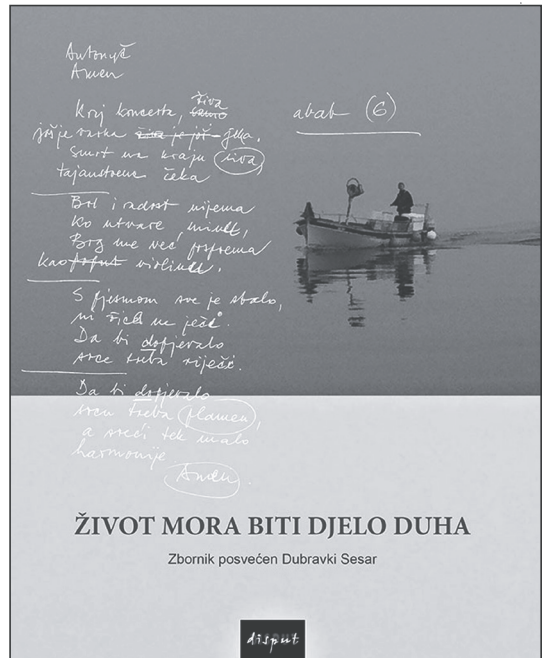 Antonyč
Amen
abab (6)
Kraj koncerta, živa
još je varka jeka.
Smrt na kraju siva
tajanstvena čeka
Bol i radost nijema
ko utvare minut,
Bog me već priprema
kao violinu.
S pjesmom sve je stalo,
ni ne ječi.
Da bi dopjevalo
srce treba riječi.
Da bi dopjevalo
srcu treba plamen,
a sreći tek malo
harmonije
Amen.
ŽIVOT MORA BITI DJELO DUHA
Zbornik posvećen Dubravki Sesar
disput